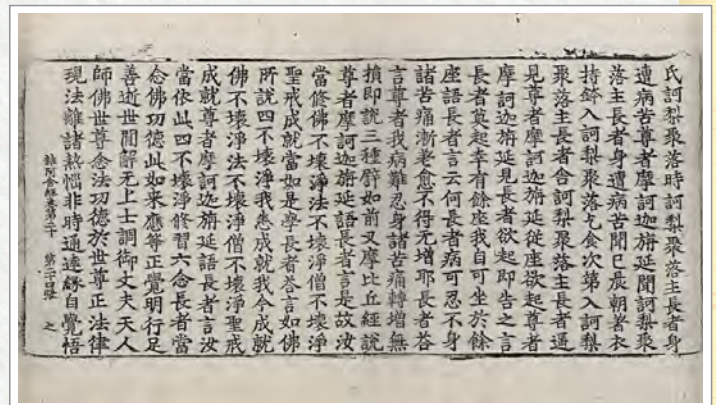 氏訶梨聚落時訶梨聚落主長者身
遭病苦尊者摩訶迦旃延聞訶梨聚
落主長者身遭病苦聞已晨朝著衣
持鉢入訶梨聚落乞食次第入訶梨
聚落主長者舍訶梨聚落主長者遙
見尊者摩訶迦旃延從座欲起尊者
摩訶迦旃延見長者欲起即告之言
長者莫起幸有餘座我自可坐於餘
座語長者言云何長者病可忍不身
諸苦痛漸差愈不得无增耶長者荅
言尊者我病難忍身諸苦痛轉增無
損即說三種譬如前叉摩比丘經說
尊者摩訶迦旃延語長者言是故汝
當修佛不壞淨法不壞淨僧不壞淨
聖戒成就當如是學長者荅言如佛
所說四不壞淨我悉成就我今成就
佛不壞淨法不壞淨僧不壞淨聖戒
成就尊者摩訶迦旃延語長者言汝
當依此四不壞淨修習六念長者當
念佛功德此如来應等正覺明行足
善逝世間解无上士調御丈夫天人
師佛世尊念法功德於世尊正法律
雜阿含經卷第二十 第二十四張 之
現法離諸熱惱非時通達緣自覺悟